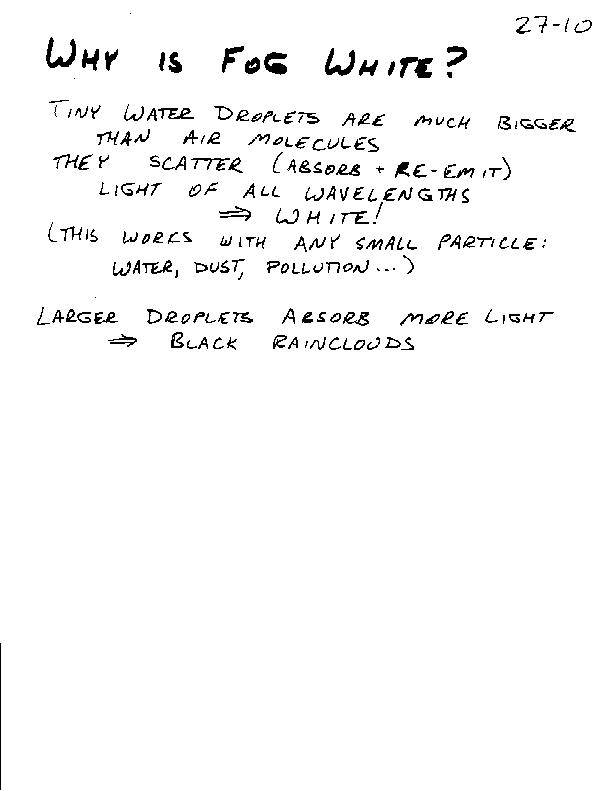 27-10
WHY IS FOG WHITE?
TINY WATER DROPLETS ARE MUCH BIGGER
THAN AIR MOLECULES
THEY SCATTER (ABSORB + RE-EMIT)
LIGHT OF ALL WAVELENGTHS
⇒ WHITE!
(THIS WORKS WITH ANY SMALL PARTICLE:
WATER, DUST, POLLUTION...)
LARGER DROPLETS ABSORB MORE LIGHT
⇒ BLACK RAINCLOUDS